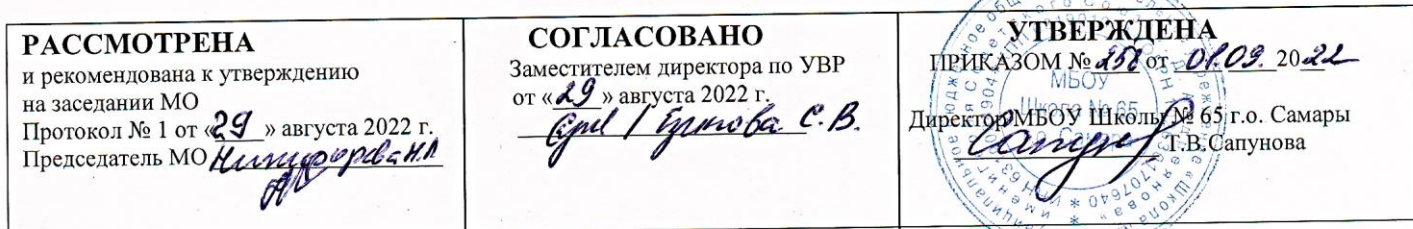 РАССМОТРЕНА
и рекомендована к утверждению
на заседании МО
Протокол № 1 от «29» августа 2022 г.
Председатель МО
СОГЛАСОВАНО
Заместителем директора по УВР
от «29» августа 2022 г.
С.В.
УТВЕРЖДЕНА
ПРИКАЗОМ № от 01.09. 2022
МБОУ
Школа № 65
Директор МБОУ Школы № 65 г.о. Самары
Т.В.Сапунова